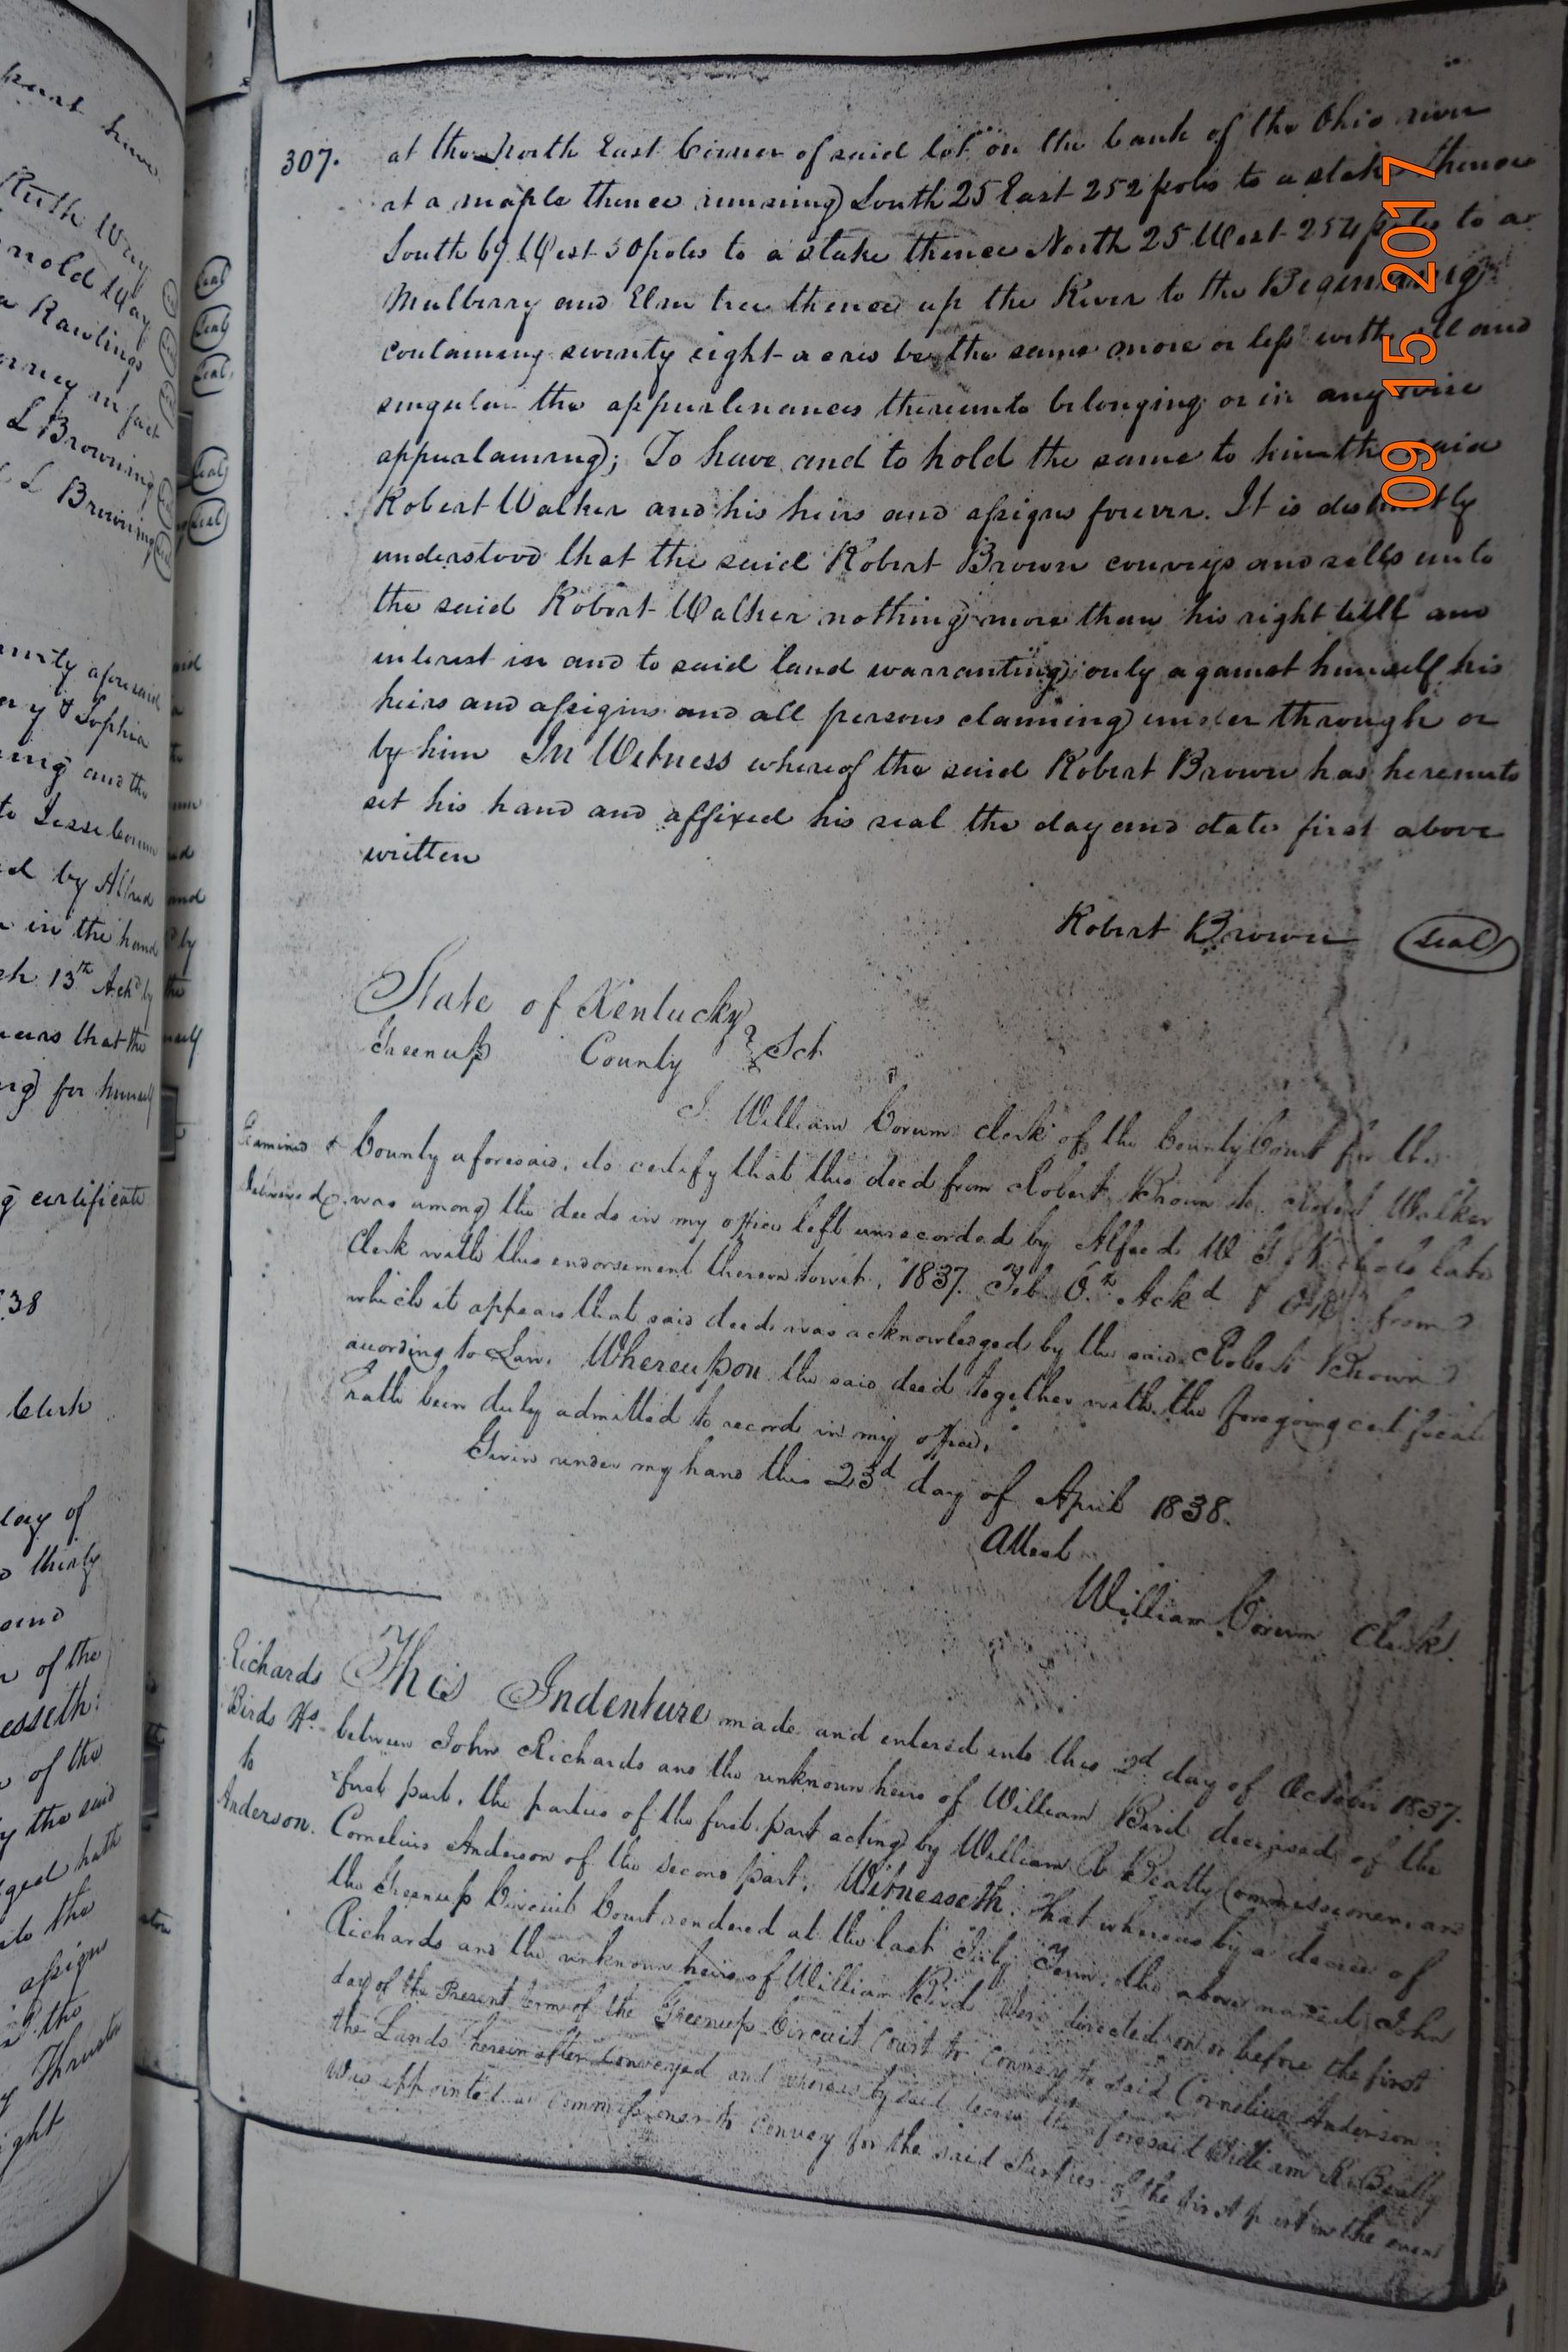 307.
at the North East Corner of said lot on the bank of the Ohio river
at a maple thence running South 25 East 252 poles to a stake thence
South 69 West 50 poles to a stake thence North 25 West 254 poles to a
Mulberry and Elm tree thence up the River to the Beginning
containing seventy eight acres be the same more or less with all and
singular the appurtenances thereunto belonging or in any wise
appurtaining; To have and to hold the same to him the said
Robert Walker and his heirs and assigns forever. It is distinctly
understood that the said Robert Brown conveys and sells unto
the said Robert Walker nothing more than his right title and
interest in and to said land warranting only against himself his
heirs and assigins and all persons claiming under through or
by him In Witness whereof the said Robert Brown has hereunto
set his hand and affixed his seal the day and date first above
written
Robert Brown seal
State of Kentucky
Greenup County Sct
I William Corum clerk of the County Court for the
Examined & County aforesaid, do certify that this deed from Robert Brown to Robert Walker
Delivered was among the deeds in my office left unrecorded by Alfred W late
Clerk with this endorsement thereon towit, 1837. Feb. 6th Ackd & OR from
which it appears that said deed was acknowledged by the said Robert Brown
according to Law. Whereupon the said deed together with the foregoing certificate
hath been duly admitted to record in my office.
Given under my hand this 23d day of April 1838.
Attest
William Corum Clerk.
Richards
Birds Hs.
to
Anderson.
This Indenture made and entered into this 2d day of October 1837.
between John Richards and the unknown heirs of William Bird deceased of the
first part, the parties of the first part acting by William R Beatty Commissioner, and
Cornelius Anderson of the second part, Witnesseth, That whereas by a decree of
the Greenup Circuit Court rendered at the last July Term, the above named John
Richards and the unknown heirs of William Bird were directed on or before the first
day of the Present term of the Greenup Circuit Court to Convey to said Cornelius Anderson
the Lands herein after Conveyed and whereas by said decree the aforesaid William R. Beatty
was appointed a Commissioner to Convey for the said Parties of the first part in the event
09 15 2017
Ruth Way
Rawlings
L Browning
L Browning
seal
seal
seal
seal
seal
aforesaid
& Sophia
and the
by Alfred
in the hand
13th Ackd by
that the
for himself
certificate
38
Clerk
day of
thirty
of the
esseth:
of the
the said
hath
to the
assigns
the